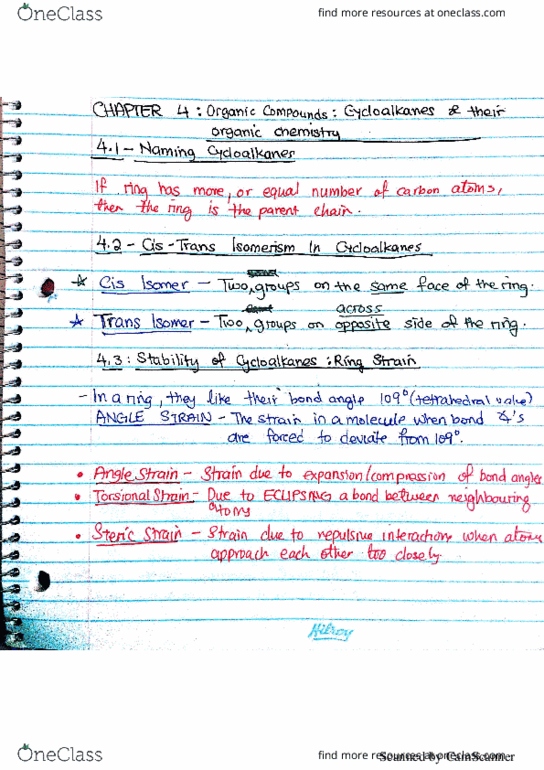 OneClass
find more resources at oneclass.com
CHAPTER 4 : Organic Compounds : Cycloalkanes & their
organic chemistry
4.1 - Naming Cycloalkanes
If ring has more, or equal number of carbon atoms,
then the ring is the parent chain.
4.2 - Cis-Trans Isomerism In Cycloalkanes
☆ Cis Isomer - Two, groups on the same face of the ring.
across
☆ Trans Isomer - Two, groups on opposite side of the ring.
4.3 : Stability of Cycloalkanes : Ring Strain
- In a ring, they like their bond angle 109° (tetrahedral value)
ANGLE STRAIN - The strain in a molecule when bond ∡'s
are forced to deviate from 109°.
• Angle Strain - Strain due to expansion/compression of bond angles
• Torsional Strain - Due to ECLIPSING a bond between neighbouring
atoms
• Steric Strain - Strain due to repulsive interaction when atoms
approach each other too closely.
Hilroy
OneClass
find more resources at oneclass.com
Scanned by CamScanner